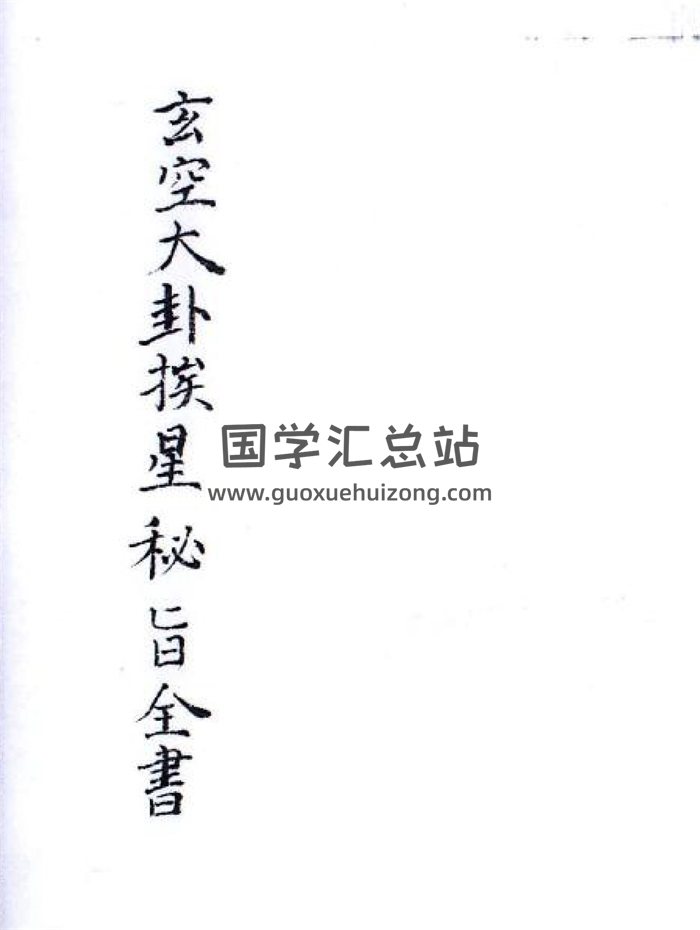 玄空大卦挨星秘旨全書
国学汇总站
www.guoxuehuizong.com